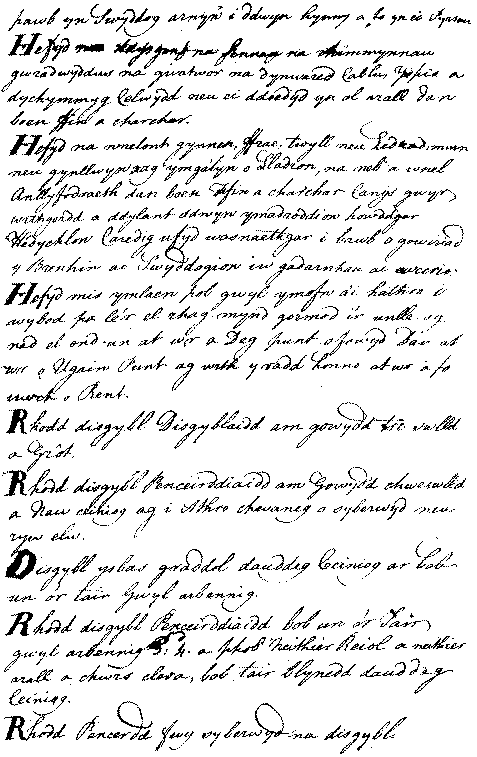 pawb yn Swyddog arnyn i ddwyn hynny a fo yn ei
Hefyd na ddysgent na Sennau na rhimmynnau
gwradwyddus na gwatwor na dynwared Cablu, a
dychymmyg Celwydd neu ei ddoedyd yn ol arall dan
boen ffin a charchar.
Hefyd na wnelont gynnen, ffrae, twyll neu Ledrad mwn
neu gynllwyn nag ymgalyn o Lladron, na neb a wnel
Anllyfodraeth dan boen ffin a charchar Canys gwyr
wrth gerdd a ddylant ddwyn ymadroddion howddgar
Hedychlon Caredig ufydd wasnaethgar i bawb o gowiriad
y Brenhin ac Swyddogion iw gadarnhau ac
Hefyd mis ymlaen pob gwyl ymofn a'i hathro i
wybod pa le'r el rhag mynd gormod i'r unlle. ag
nad el ond un at wr a Deg punt o fowyd Dau at
wr o Ugain Punt ag wrth y radd honno at wr a fo
uwch o Rent.
Rhodd disgybl Disgyblaidd am gowydd tri swlld
a Grôt.
Rhodd disgybl Penceirddiaidd am Gowydd chweswlld
a Nau ceiniog ag i Athro chwaneg o syberwyd neu
ryw elw.
Disgybl ysbas graddol dauddeg Ceiniog ar bob
un o'r tair Gwyl arbennig.
Rhodd disgybl Penceirddiaidd bob un o'r Tair
gwyl arbennig 3: 4. a phob Neithior Reiol a neithior
arall a chwrs clera, bob tair blynedd dauddeg
Ceiniog.
Rhodd Pencerdd fwy syberwyd na disgybl.